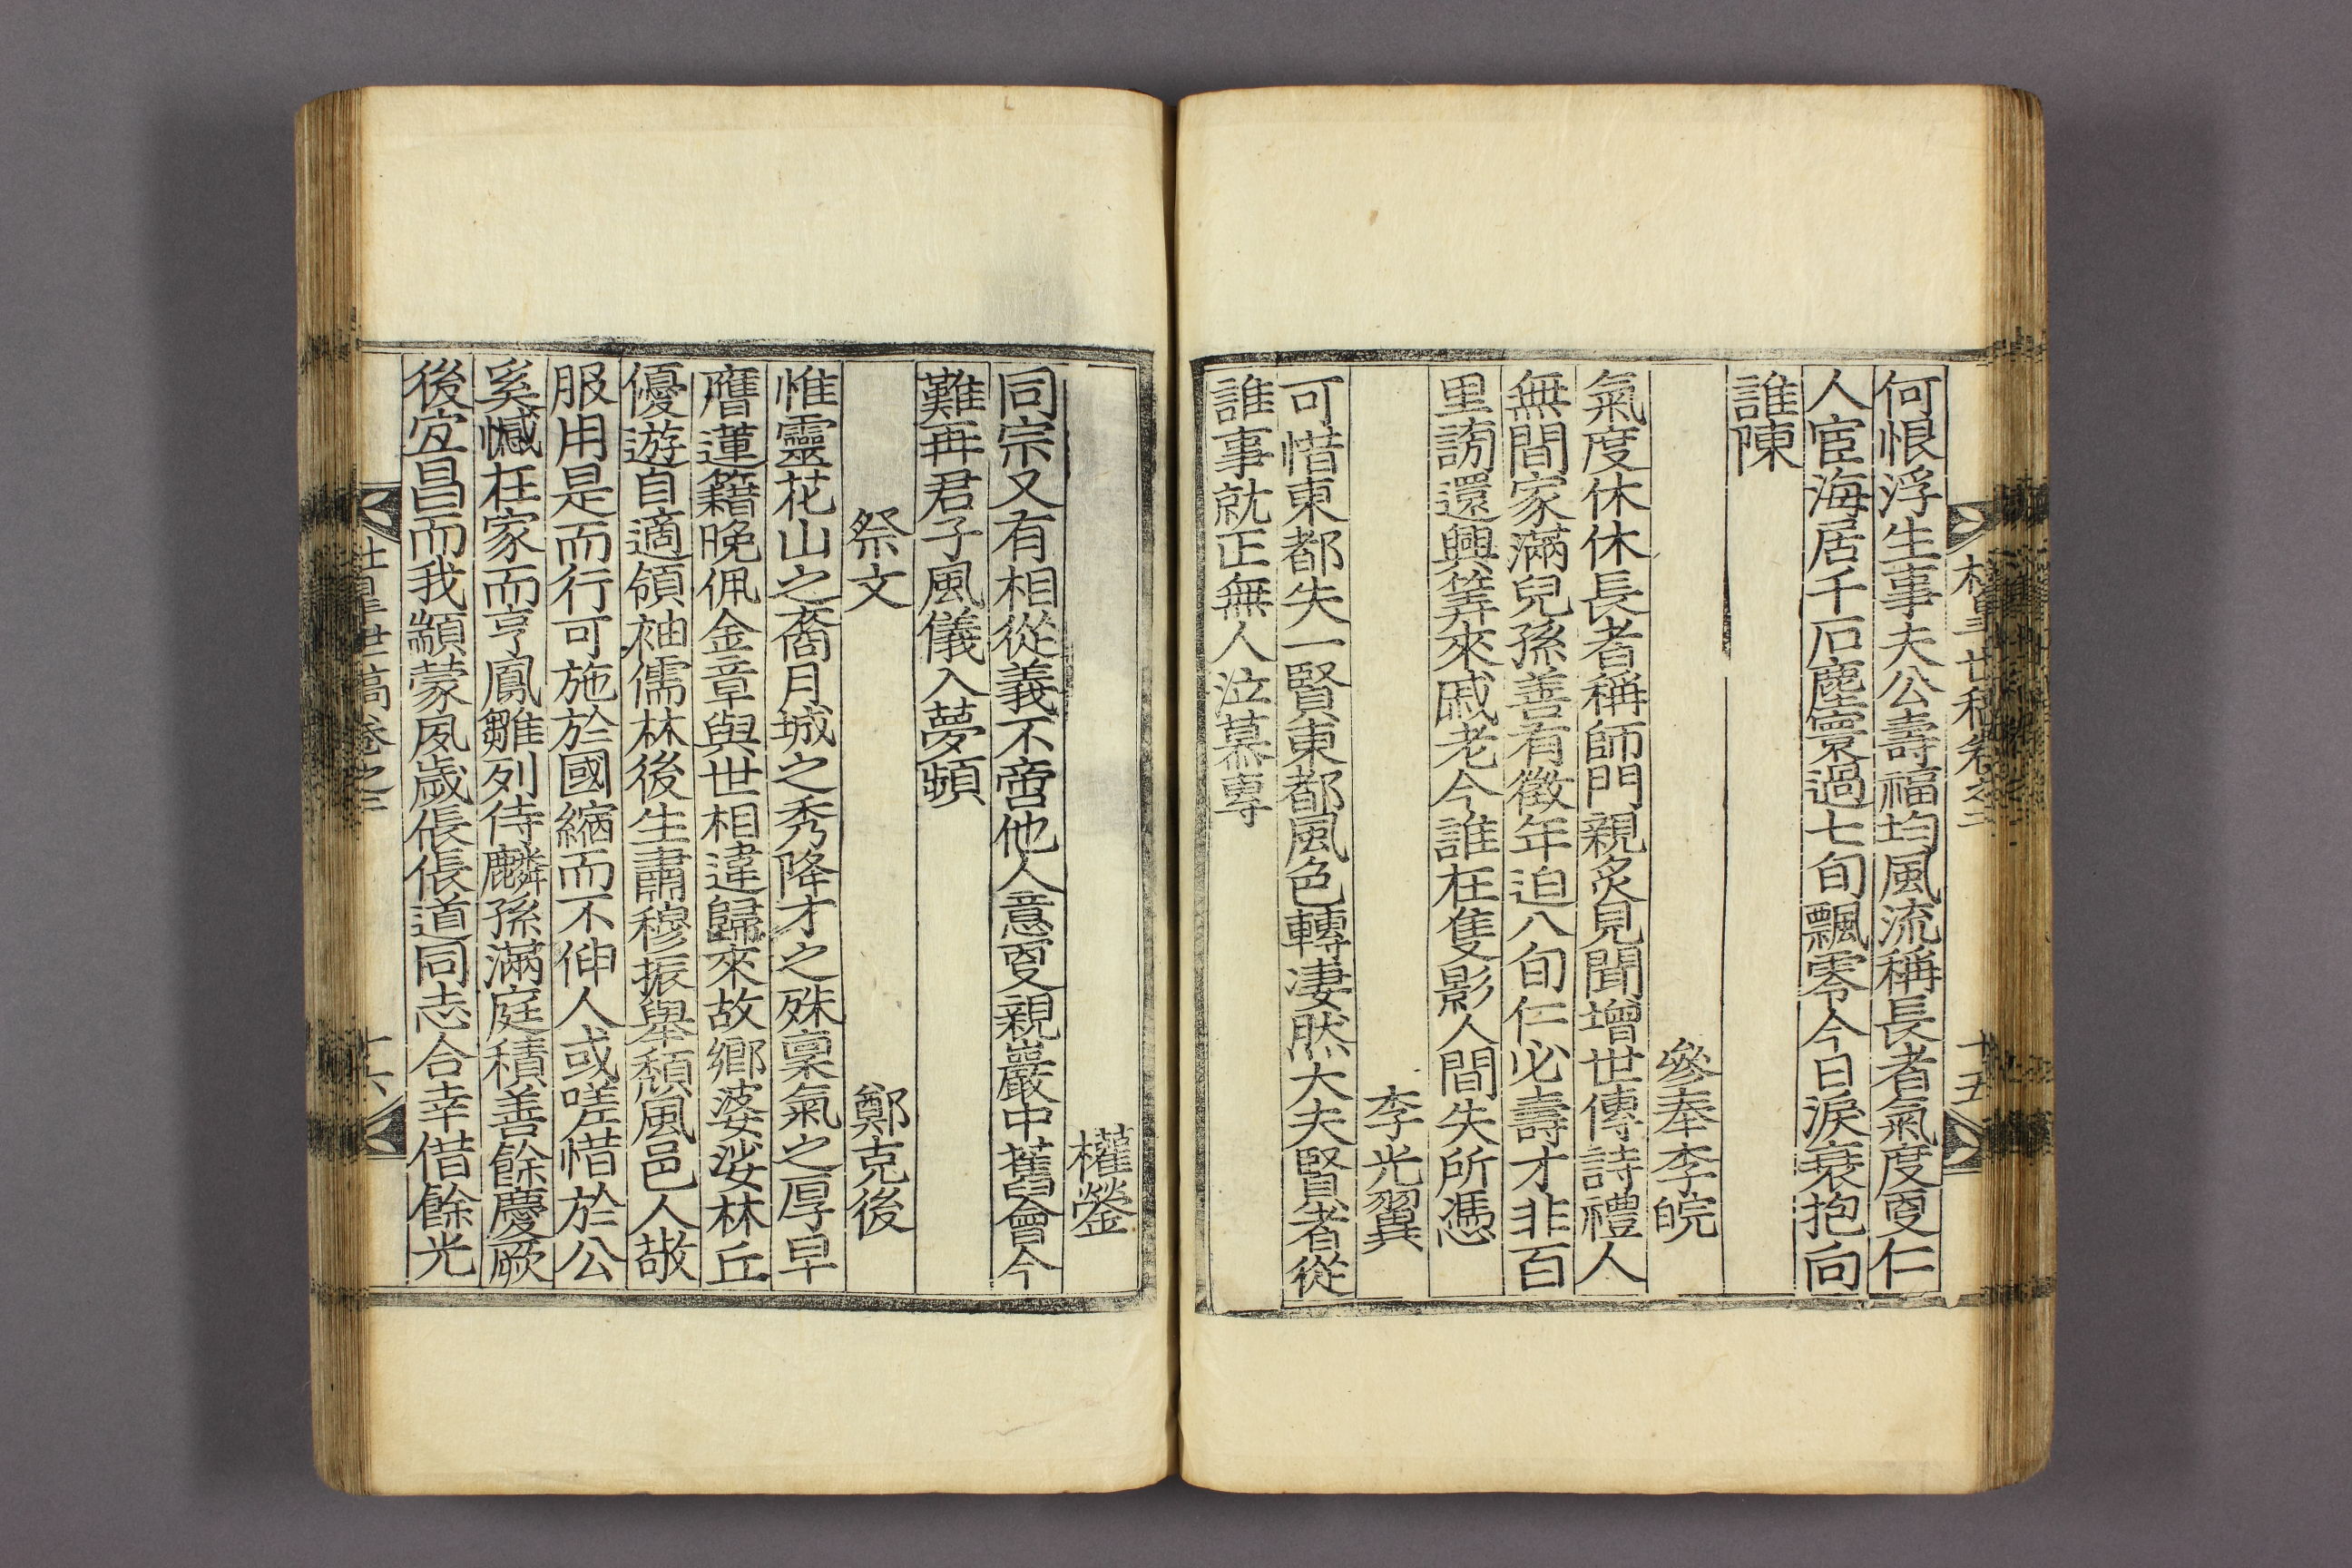 何恨浮生事夫公壽福均風流稱長者氣度夏仁
人宦海居千石塵寰過七旬飄零今日淚衰抱向
誰陳
參奉李皖
氣度休休長者稱師門親炙見聞增世傳詩禮人
無間家滿兒孫善有徵年迫八旬仁必壽才非百
里謗還興筭來戚老今誰在隻影人間失所憑
李光翼
可惜東都失一賢東都風色轉凄然大夫賢者從
誰事就正無人泣慕專
權鎣
同宗又有相從義不啻他人意夏親巖中舊會今
難再君子風儀入夢頻
祭文 鄭克後
惟靈花山之裔月城之秀降才之殊稟氣之厚早
膺蓮籍晚佩金章與世相違歸來故鄉婆娑林丘
優遊自適領袖儒林後生肅穆振擧頹風邑人敬
服用是而行可施於國縮而不伸人或嗟惜於公
奚憾在家而亨鳳雛列侍麟孫滿庭積善餘慶厥
後宜昌而我顓蒙夙歲倀倀道同志合幸借餘光
世稿卷之三